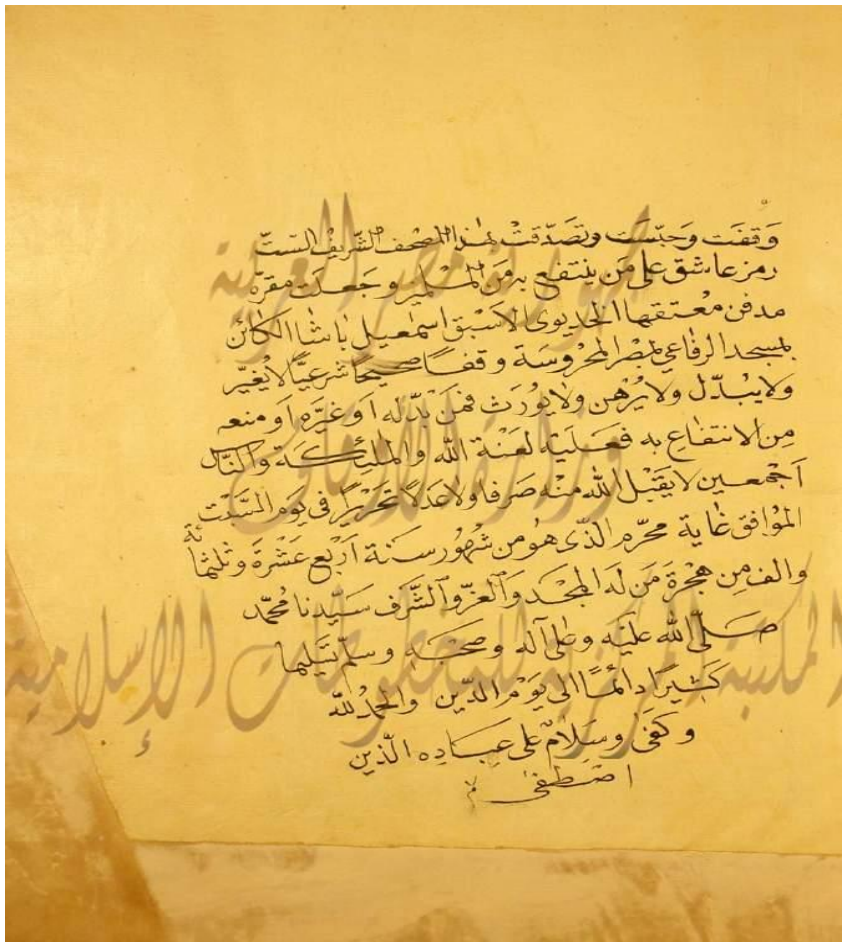 وقفت وحبّست وتصدّقت بهذا المصحف الشّريف السّتّ
رمز عاشق على من ينتفع به من المسلمين وجعلت مقرّه
مدفن معتقها الخديوى الاسبق اسمعيل باشا الكائن
بمسجد الرفاعي بمصر المحروسة وقفاً صحيحاً شرعيّاً لا يغيّر
ولا يبدّل ولا يرهن ولا يورث فمن بدّله او غيّره او منعه
من الانتفاع به فعليه لعنة الله والملئكة والناس
اجمعين لا يقبل الله منه صرفا ولا عدلا تحريرا في يوم السّبت
الموافق غاية محرّم الذّى هو من شهور سنة اربع عشرة وثلثمائة
والف من هجرة من له المجد والعزّ والشّرف سيّدنا محمّد
صلّى الله عليه وعلى آله وصحبه وسلّم تسليما
كثيرا دائماً الى يوم الدّين والحمد لله
وكفى وسلام على عباده الّذين
اصطفى
جمهورية مصر العربية
وزارة الأوقاف
المكتبة المركزية للمخطوطات الإسلامية